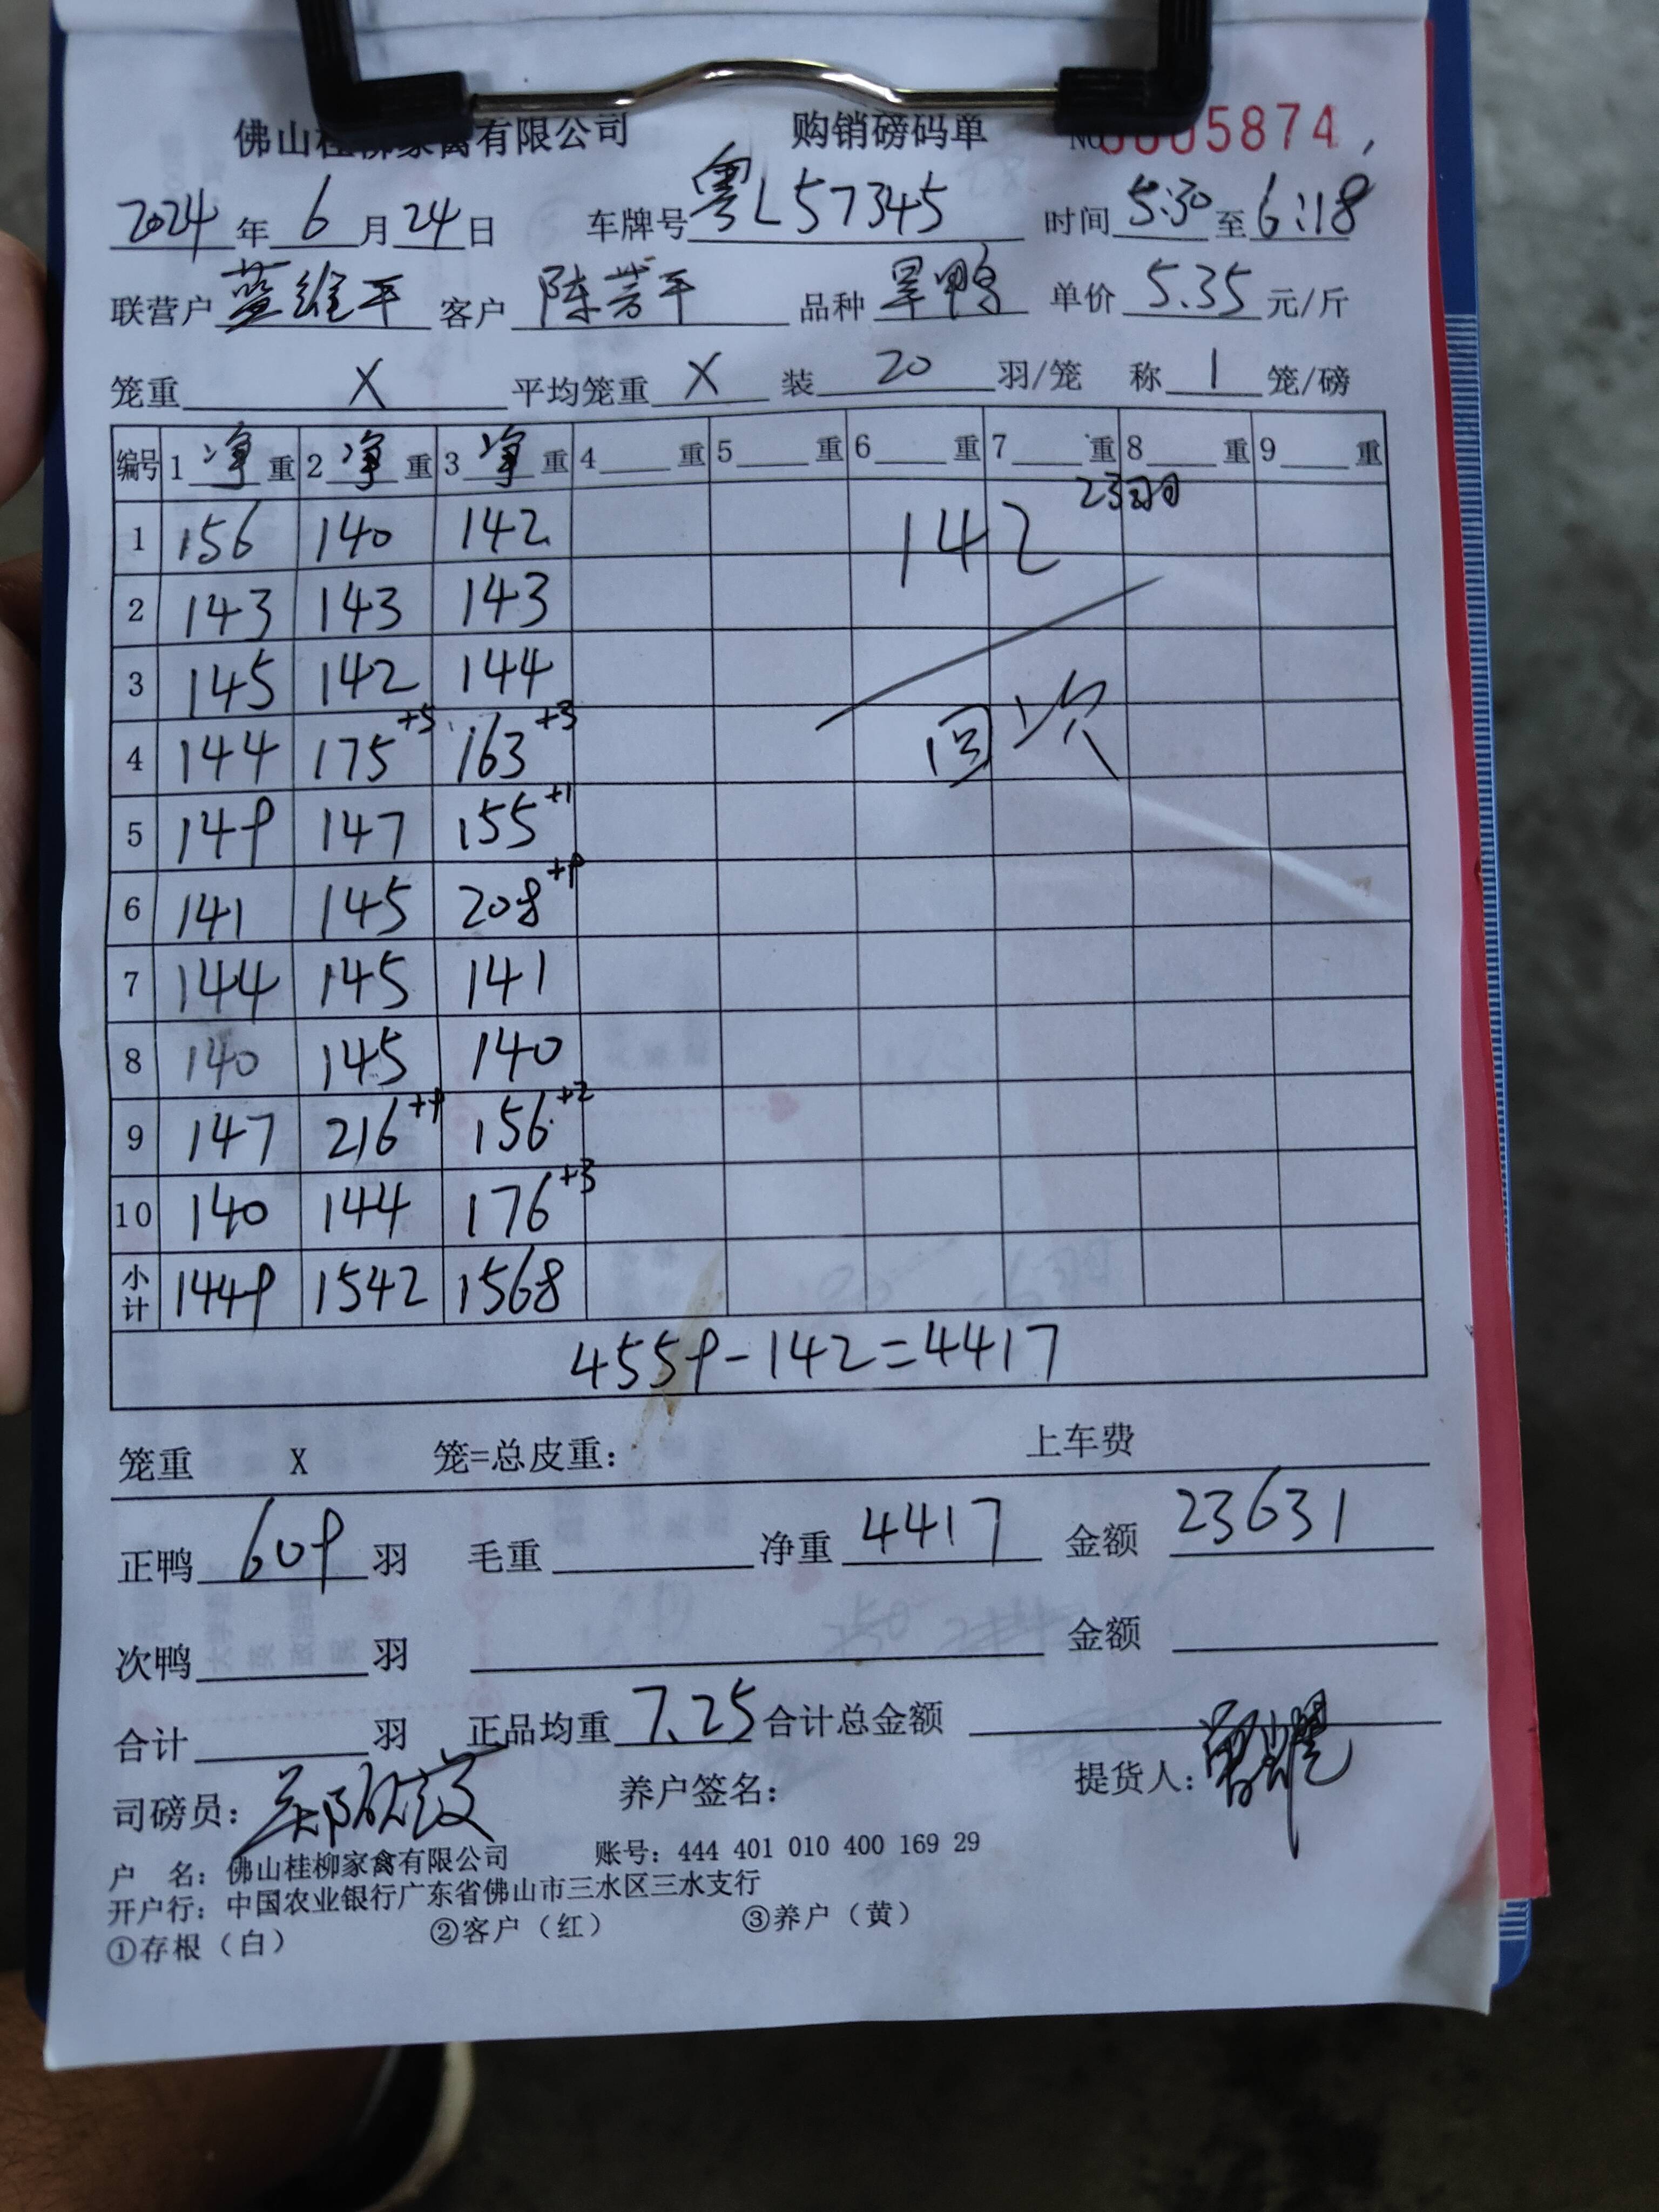 佛山桂柳家禽有限公司 购销磅码单 No 0005874
2024年6月24日 车牌号粤L57345 时间5:30至6:18
联营户蓝维平 客户陈芳平 品种旱鸭 单价5.35元/斤
笼重X 平均笼重X 装20羽/笼 称1笼/磅
编号 1净重 2净重 3净重 4重 5重 6重 7重 8重 9重
23羽
1 156 140 142 142
2 143 143 143
3 145 142 144
4 144 175+5 163+3 回次
5 149 147 155+1
6 141 145 208+9
7 144 145 141
8 140 145 140
9 147 216+9 156+2
10 140 144 176+3
小计 1449 1542 1568
4559-142=4417
笼重 X 笼=总皮重： 上车费
正鸭609羽 毛重 净重4417 金额23631
次鸭 羽 金额
合计 羽 正品均重7.25 合计总金额
司磅员： 养户签名： 提货人：
户 名：佛山桂柳家禽有限公司 账号：444 401 010 400 169 29
开户行：中国农业银行广东省佛山市三水区三水支行
①存根（白） ②客户（红） ③养户（黄）